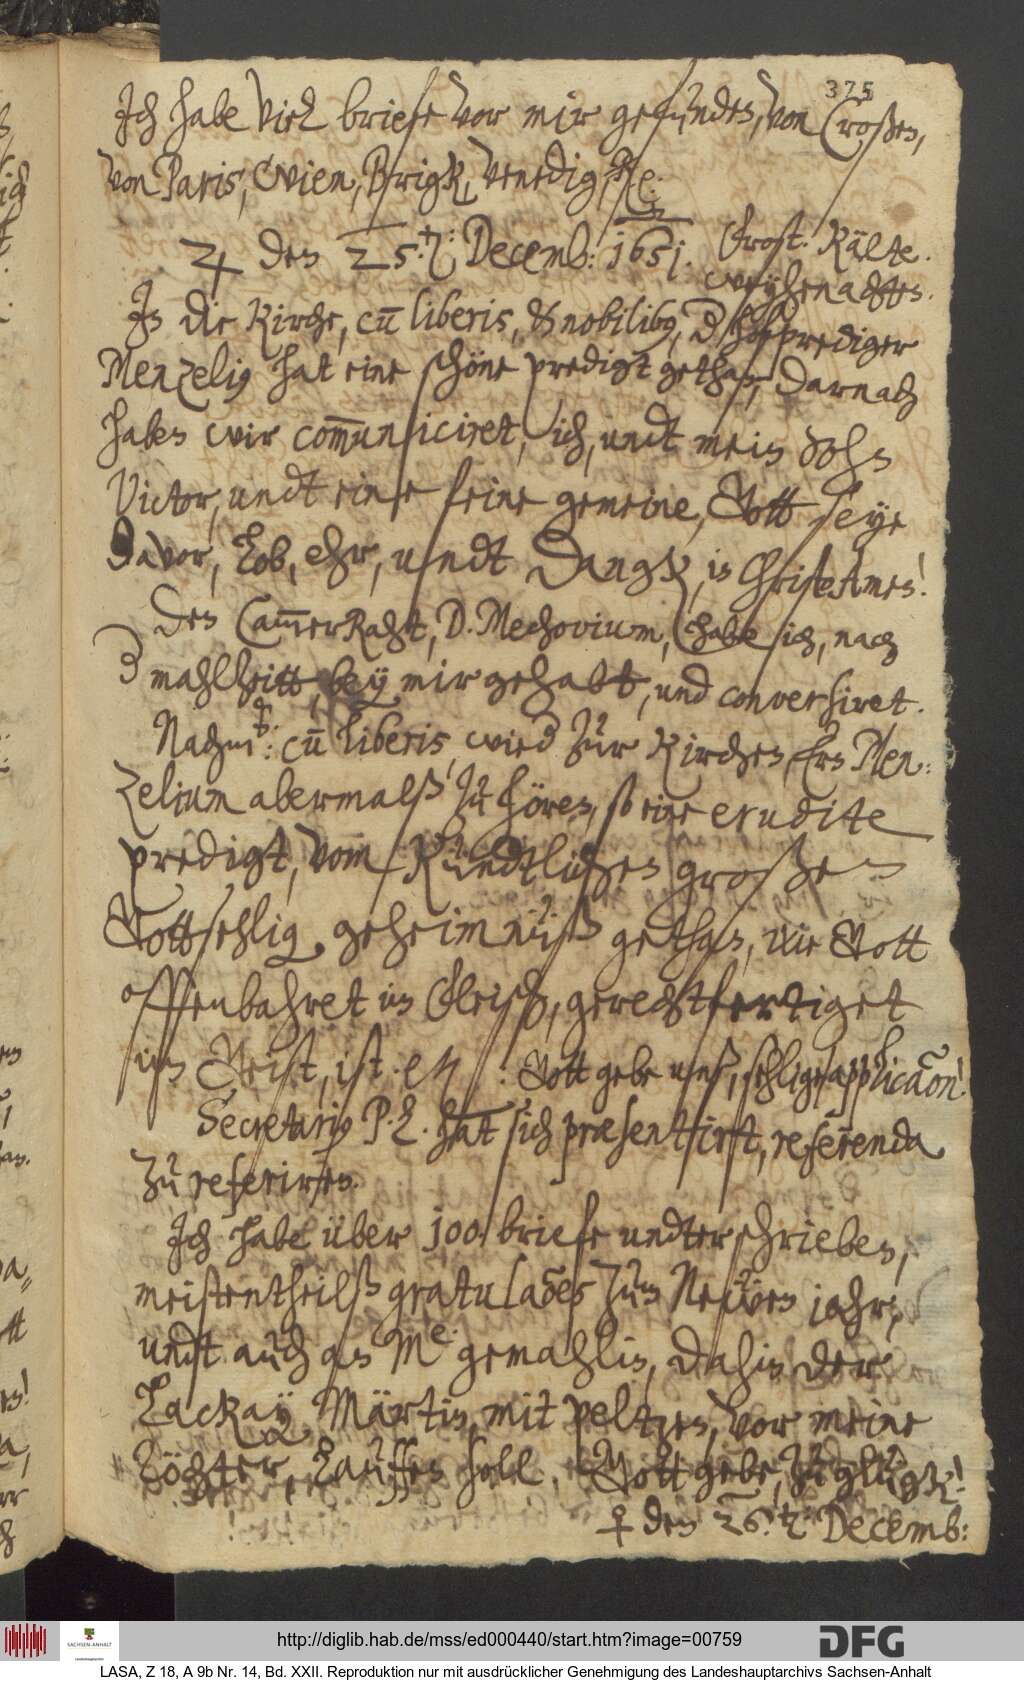 375
Ich habe viel briefe vor mir gefunden, von Croßen,
von Paris, Wien, Brigk, Venedig, etc:
♃ den 25. t: Decemb: 1651. Frost. Kälte.
Weyhenachten.
In die Kirche, cũ liberis, & nobilibus, d hoffprediger
Menzelius hat eine schöne predigt gethan, darnach
haben wir com̃uniciret, ich, undt mein Sohn
Victor, undt eine feine gemeine, Gott seye
davor, Lob, ehr, undt Dangk, in Christo Amen!
Den Cam̃erRaht, D. Mechovium, habe ich, nach
d mahlzeitt, bey mir gehabt, und conversiret.
Nachm: cũ liberis, wied zur Kirchen, Ern Men-
zelium abermalß zu hören, so eine erudite
predigt, vom Kündtlichen großen
Gottsehlig. geheimnüß gethan, wie Gott
offenbahret im Fleisch, gerechtfertiget
im Geist, ist. etc. Gott gebe unß, sehlige applicaõn!
Secretarius P. L. hat sich præsentirt, referenda
zu referiren.
Ich habe über 100 briefe undterschrieben,
meistentheilß gratulaões zum Neẅen jahr,
undt auch an Me: gemahlin, dahin der
Lackay Märtin, mit peltzen, vor meine
Töchter, Lauffen soll. Gott gebe, zu glügk!
♀ den 26. t: Decemb:
http://diglib.hab.de/mss/ed000440/start.htm?image=00759
SACHSEN-ANHALT
Landeshauptarchiv
DFG
LASA, Z 18, A 9b Nr. 14, Bd. XXII. Reproduktion nur mit ausdrücklicher Genehmigung des Landeshauptarchivs Sachsen-Anhalt